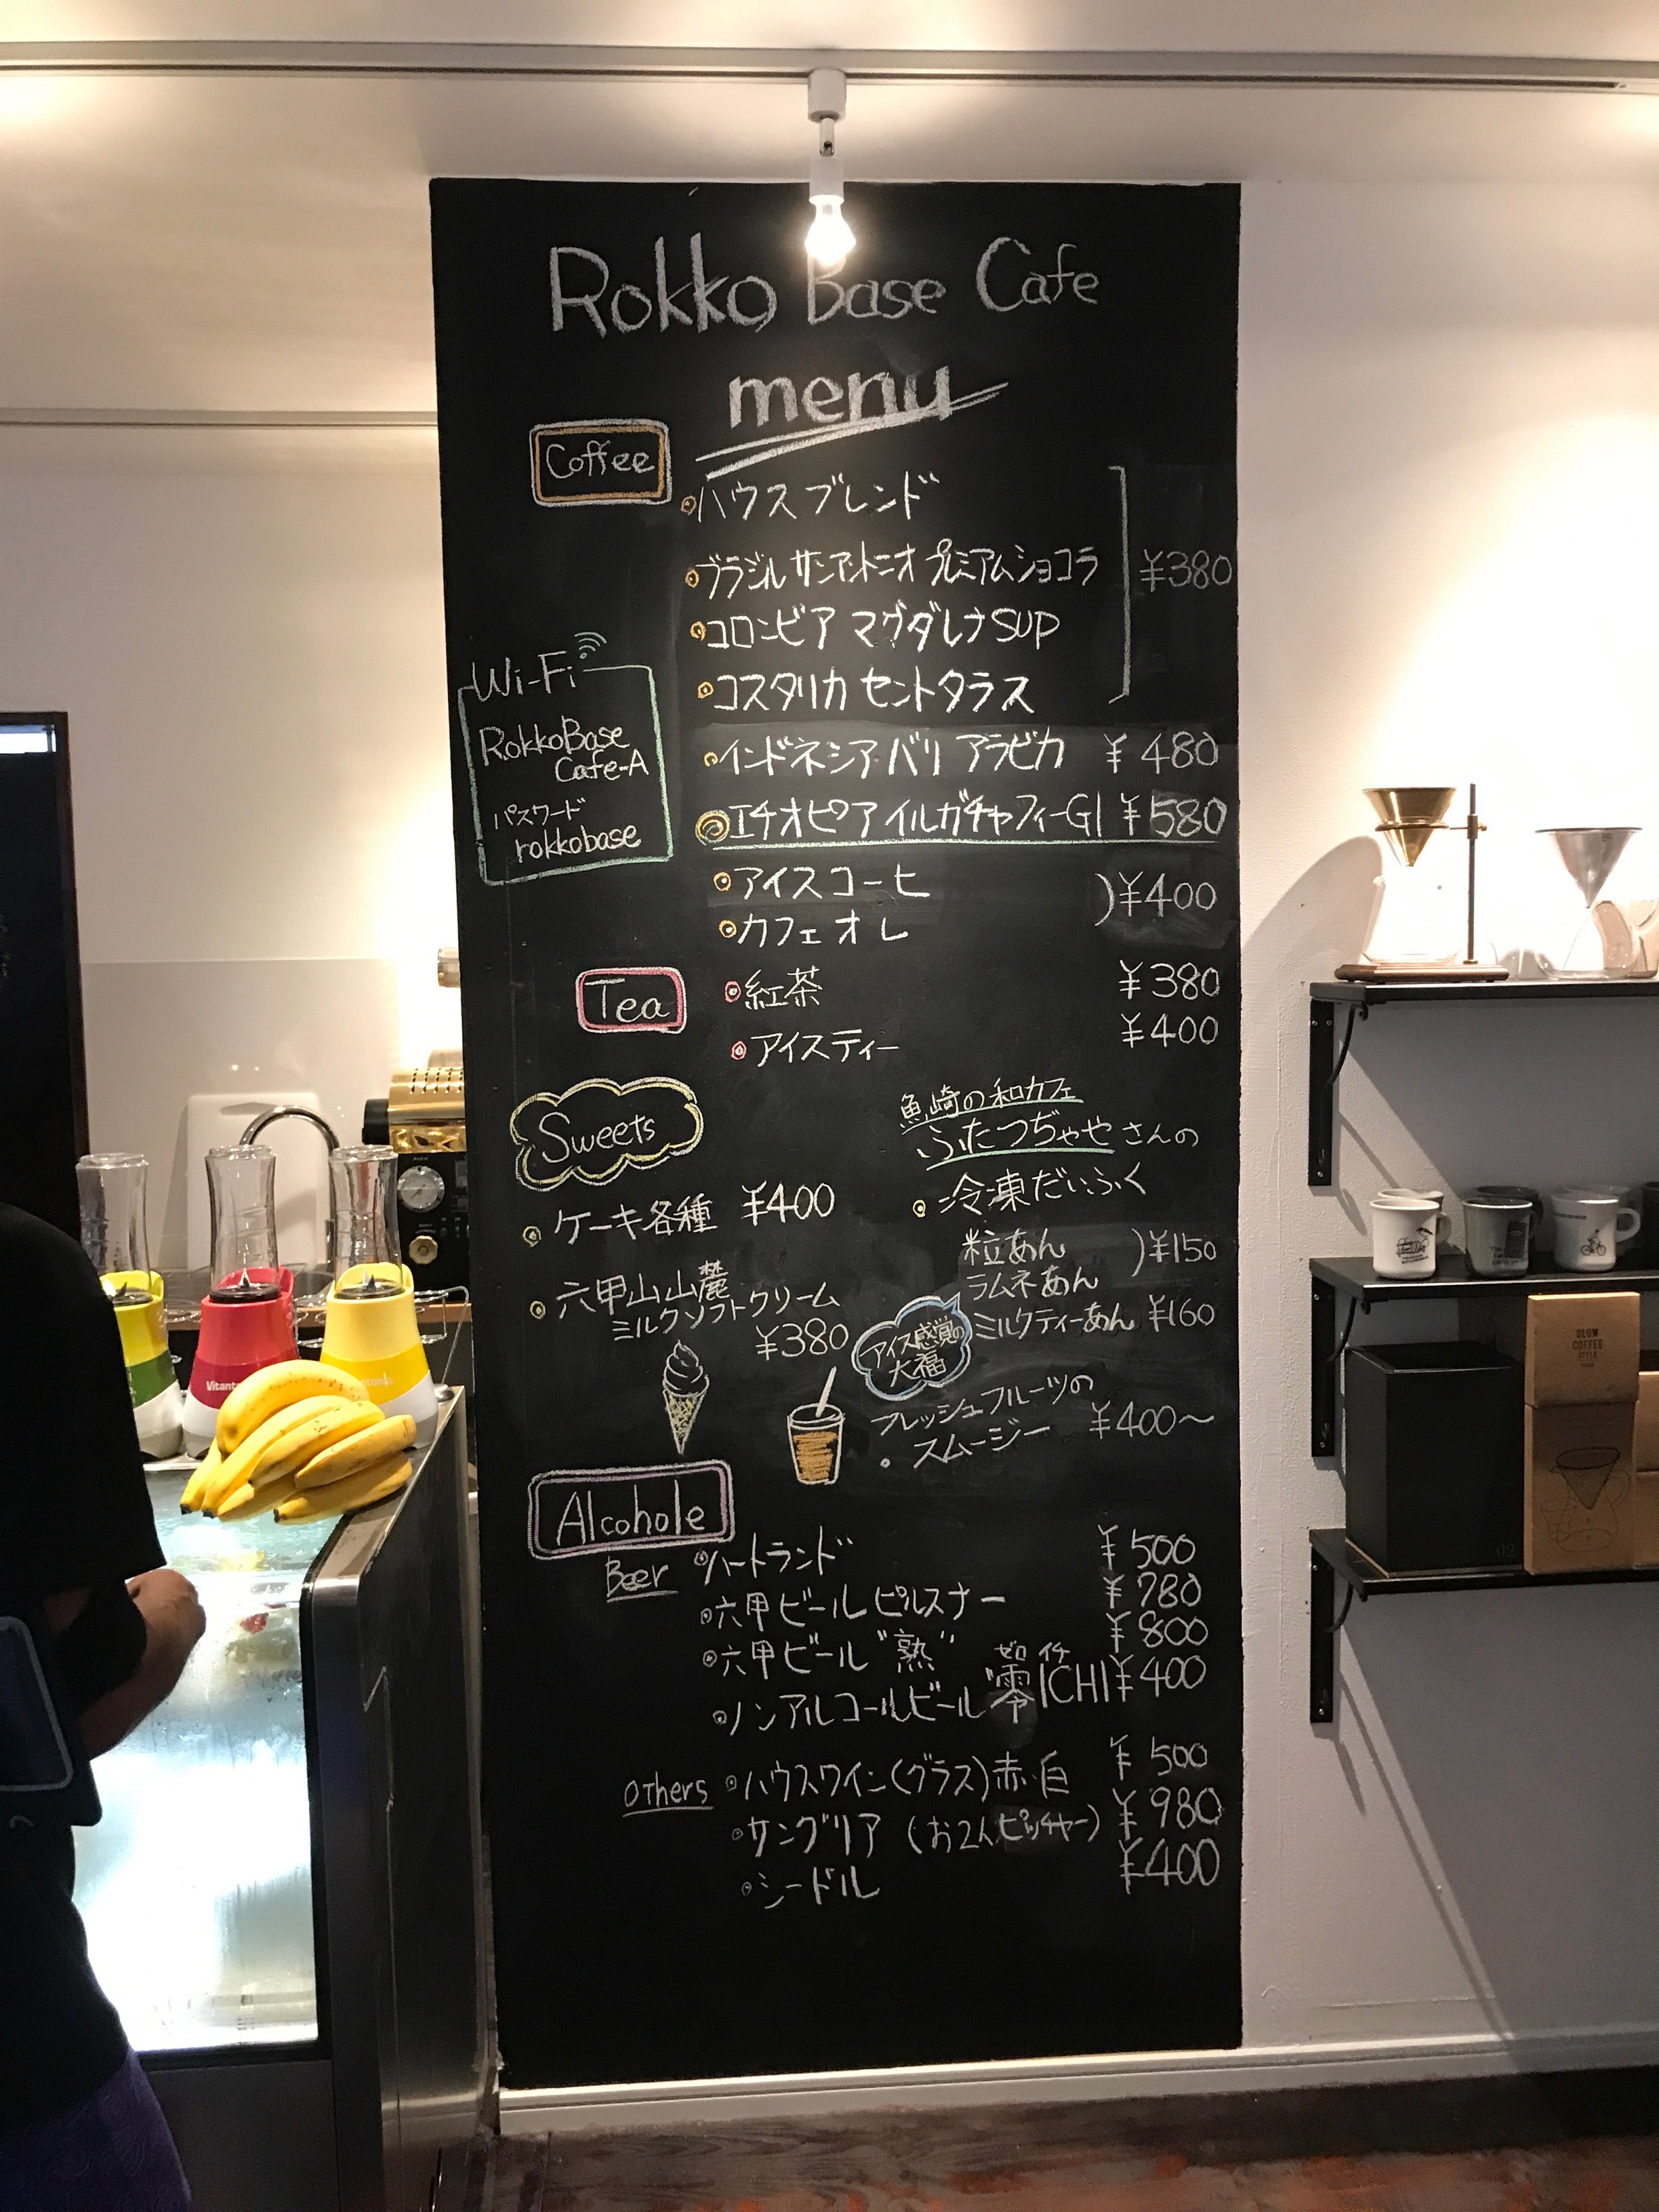 Rokko Base Cafe
menu
Coffee
ハウスブレンド
ブラジルサンアントニオ プレミアムショコラ ¥380
コロンビア マグダレナSUP
コスタリカ セントタラス
インドネシア バリ アラビカ ¥480
エチオピア イルガチャフィーG1 ¥580
アイスコーヒ
カフェオレ
)¥400
Wi-Fi
RokkoBase
Cafe-A
パスワード
rokkobase
Tea
紅茶 ¥380
アイスティー ¥400
Sweets
ケーキ各種 ¥400
六甲山山麓
ミルクソフトクリーム
¥380
魚崎の和カフェ
ふたつぢゃやさんの
冷凍だいふく
粒あん )¥150
ラムネあん
ミルクティーあん ¥160
アイス感覚の
大福
フレッシュフルーツの
・スムージー ¥400〜
Alcohole
Beer
ハートランド ¥500
六甲ビールピルスナー ¥780
六甲ビール"熟" ¥800
ゼロ イチ
ノンアルコールビール 零ICHI ¥400
others
ハウスワイン(グラス)赤・白 ¥500
サングリア (お2人ピッチャー) ¥980
シードル ¥400
Vitanto
SLOW
COFFEE
STYLE
02